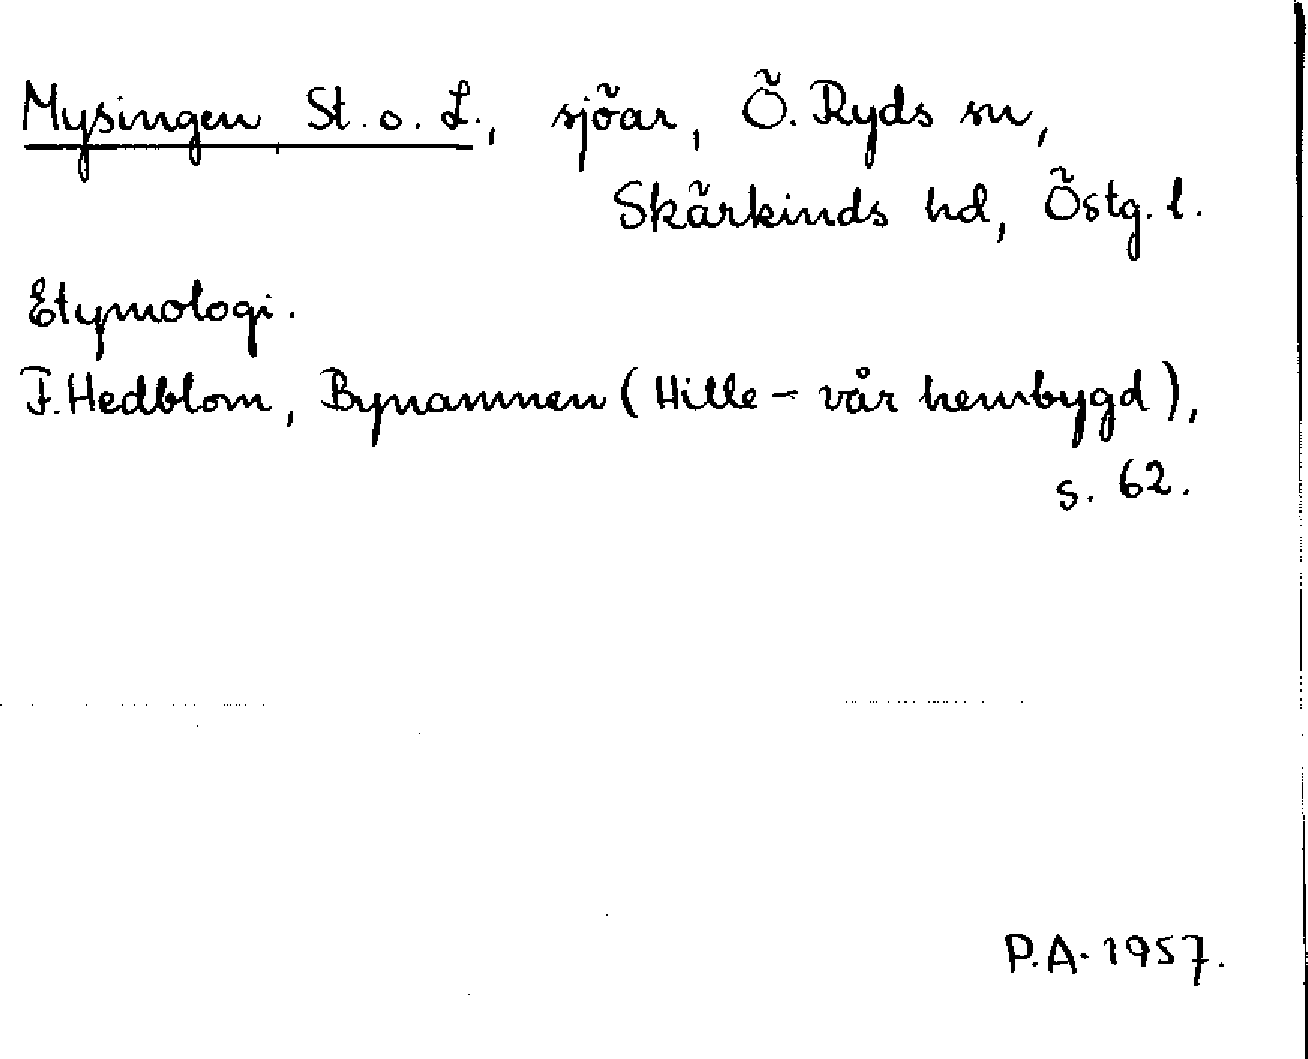 Mysingen St. o. L., sjöar, Ö. Ryds sn,
Skärkinds hd, Östg. l.
Etymologi.
F. Hedblom, Bynamnen (Hille - vår hembygd),
s. 62.
P.A. 1957.